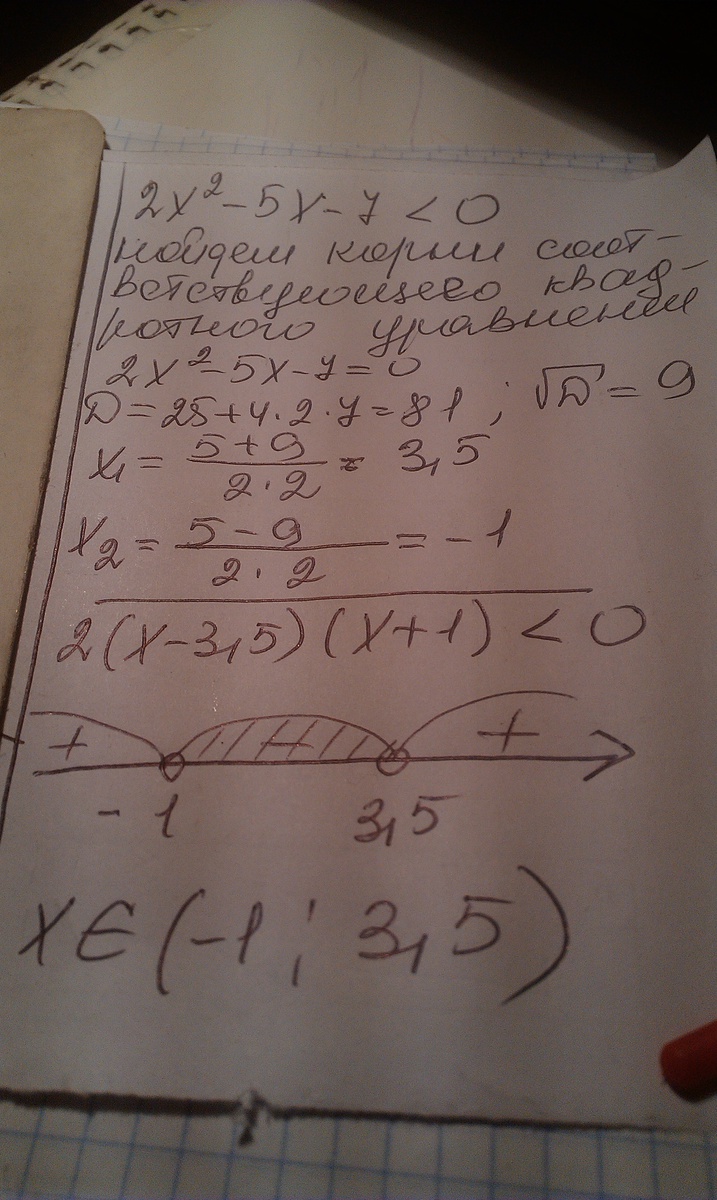 2x² - 5x - 7 < 0
найдем корни соот-
ветствующего квад-
ратного уравнения
2x² - 5x - 7 = 0
D = 25 + 4 · 2 · 7 = 81 ; √D = 9
x₁ = (5 + 9)/(2 · 2) = 3,5
x₂ = (5 - 9)/(2 · 2) = -1
2(x - 3,5)(x + 1) < 0
+ - +
-1 3,5
x ∈ (-1 ; 3,5)